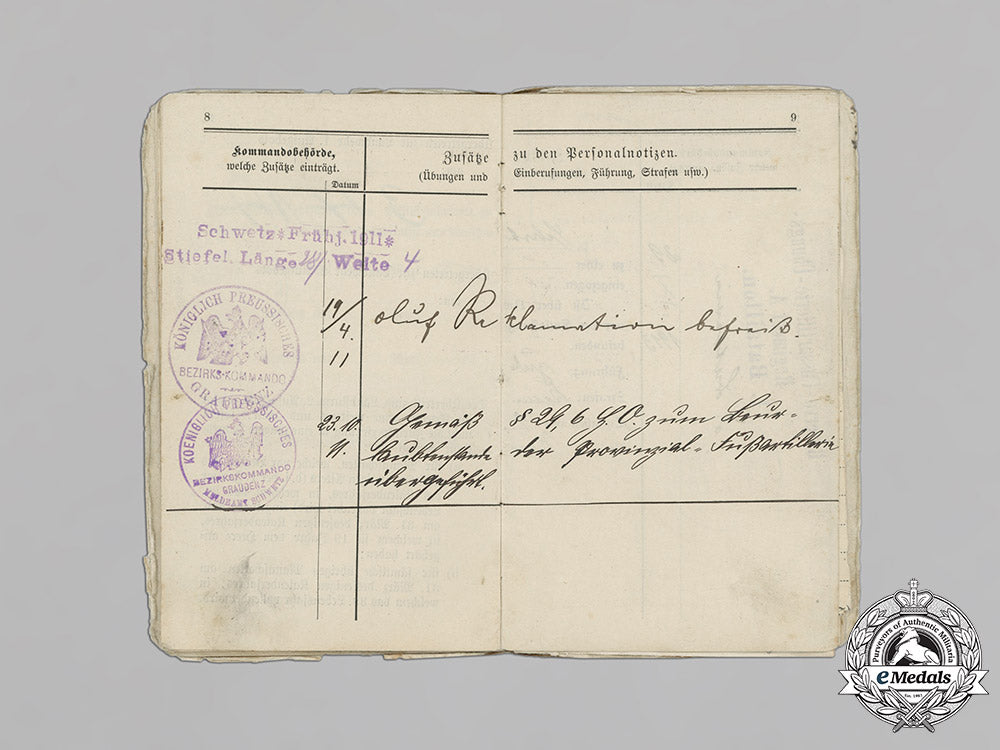 8
9
Kommandobehörde,
welche Zusätze einträgt.
Datum
Zusätze zu den Personalnotizen.
(Übungen und Einberufungen, Führung, Strafen usw.)
Schwetz*Frühj. 1911*
Stiefel. Länge 28/ Weite 4
19/4. 11
auf Reklamation befreit.
KÖNIGLICH PREUSSISCHES
BEZIRKS-KOMMANDO
GRAUDENZ
23.10. 11.
Gemäß § 29, 6 H.O. zum Beur-
laubtenstande der Provinzial-Fußartillerie
übergeführt.
KOENIGLICH PREUSSISCHES
BEZIRKSKOMMANDO
GRAUDENZ
MELDEAMT SCHWETZ
Purveyors of Authentic Militaria
eMedals
Est. 1967